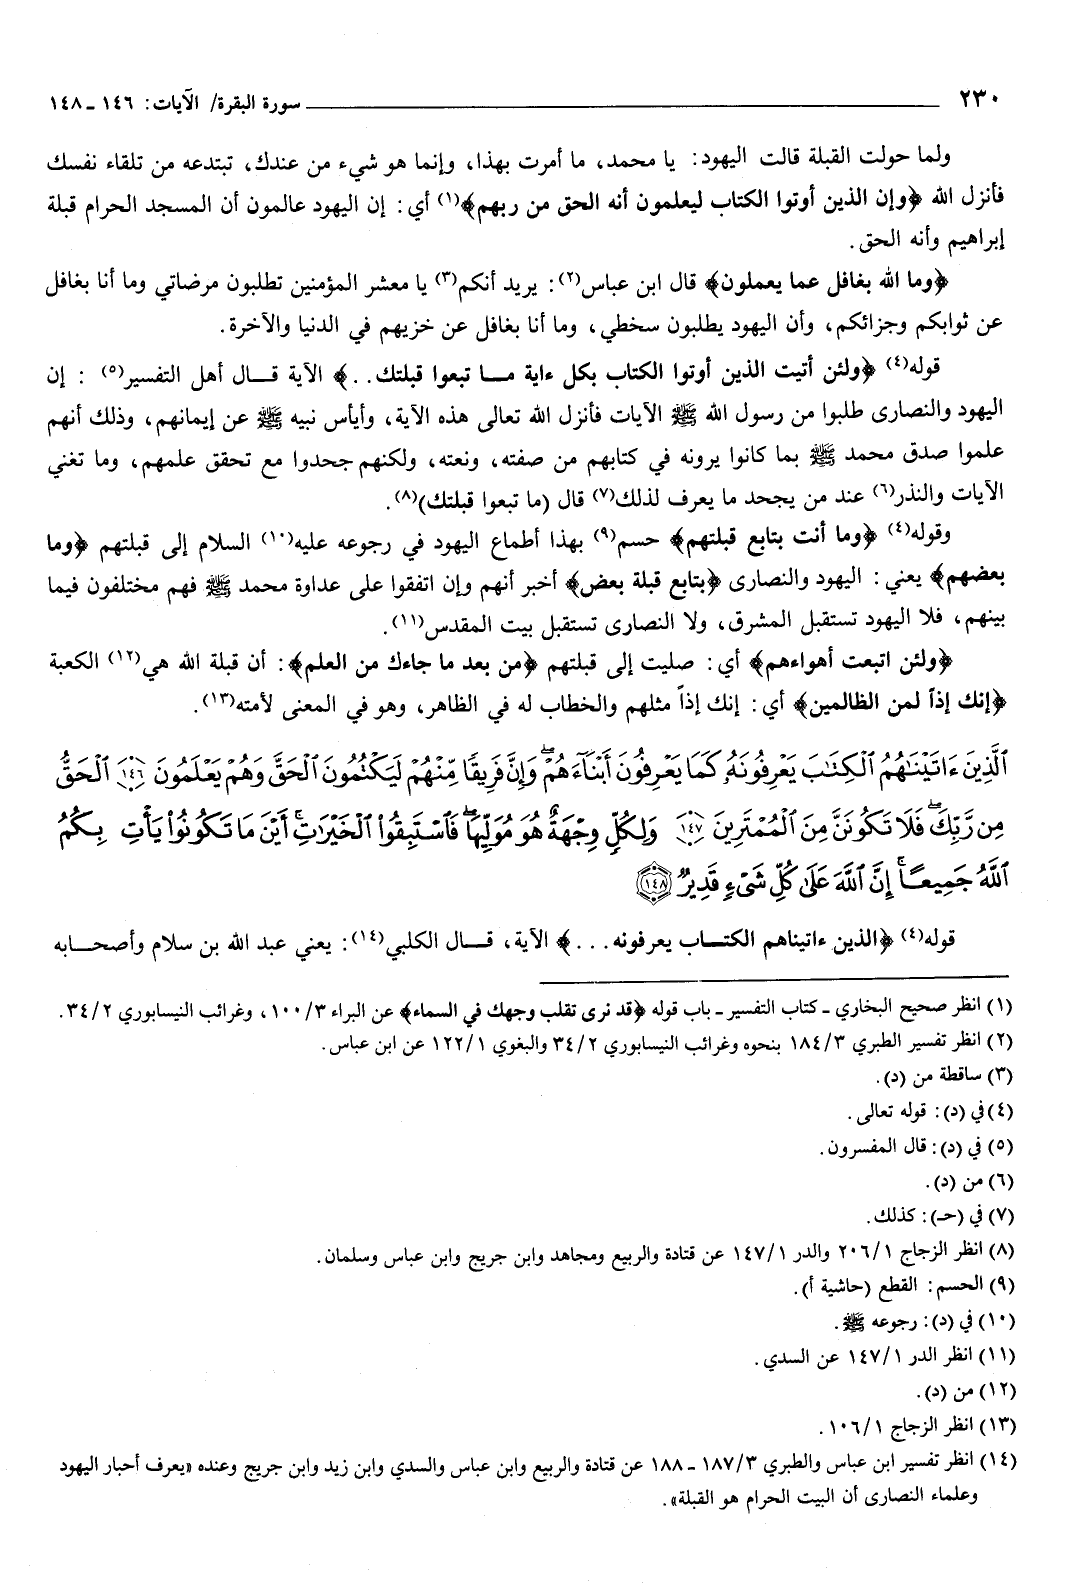 ٢٣٠ سورة البقرة/ الآيات: ١٤٦ ـ ١٤٨
ولما حولت القبلة قالت اليهود: يا محمد، ما أمرت بهذا، وإنما هو شيء من عندك، تبتدعه من تلقاء نفسك
فأنزل الله ﴿وإن الذين أوتوا الكتاب ليعلمون أنه الحق من ربهم﴾(١) أي: إن اليهود عالمون أن المسجد الحرام قبلة
إبراهيم وأنه الحق.
﴿وما الله بغافل عما يعملون﴾ قال ابن عباس(٢): يريد أنكم(٣) يا معشر المؤمنين تطلبون مرضاتي وما أنا بغافل
عن ثوابكم وجزائكم، وأن اليهود يطلبون سخطي، وما أنا بغافل عن خزيهم في الدنيا والآخرة.
قوله(٤) ﴿ولئن أتيت الذين أوتوا الكتاب بكل ءاية مـا تبعوا قبلتك..﴾ الآية قـال أهل التفسير(٥) : إن
اليهود والنصارى طلبوا من رسول الله ﷺ الآيات فأنزل الله تعالى هذه الآية، وأيأس نبيه ﷺ عن إيمانهم، وذلك أنهم
علموا صدق محمد ﷺ بما كانوا يرونه في كتابهم من صفته، ونعته، ولكنهم جحدوا مع تحقق علمهم، وما تغني
الآيات والنذر(٦) عند من يجحد ما يعرف لذلك(٧) قال (ما تبعوا قبلتك)(٨).
وقوله(٤) ﴿وما أنت بتابع قبلتهم﴾ حسم(٩) بهذا أطماع اليهود في رجوعه عليه(١٠) السلام إلى قبلتهم ﴿وما
بعضهم﴾ يعني: اليهود والنصارى ﴿بتابع قبلة بعض﴾ أخبر أنهم وإن اتفقوا على عداوة محمد ﷺ فهم مختلفون فيما
بينهم، فلا اليهود تستقبل المشرق، ولا النصارى تستقبل بيت المقدس(١١).
﴿ولئن اتبعت أهواءهم﴾ أي: صليت إلى قبلتهم ﴿من بعد ما جاءك من العلم﴾: أن قبلة الله هي(١٢) الكعبة
﴿إنك إذاً لمن الظالمين﴾ أي: إنك إذاً مثلهم والخطاب له في الظاهر، وهو في المعنى لأمته(١٣).
ٱلَّذِينَ ءَاتَيْنَٰهُمُ ٱلْكِتَٰبَ يَعْرِفُونَهُۥ كَمَا يَعْرِفُونَ أَبْنَآءَهُمْ ۖ وَإِنَّ فَرِيقًا مِّنْهُمْ لَيَكْتُمُونَ ٱلْحَقَّ وَهُمْ يَعْلَمُونَ ١٤٦ ٱلْحَقُّ
مِن رَّبِّكَ ۖ فَلَا تَكُونَنَّ مِنَ ٱلْمُمْتَرِينَ ١٤٧ وَلِكُلٍّ وِجْهَةٌ هُوَ مُوَلِّيهَا ۖ فَٱسْتَبِقُوا۟ ٱلْخَيْرَٰتِ ۚ أَيْنَ مَا تَكُونُوا۟ يَأْتِ بِكُمُ
ٱللَّهُ جَمِيعًا ۚ إِنَّ ٱللَّهَ عَلَىٰ كُلِّ شَىْءٍ قَدِيرٌ ١٤٨
قوله(٤) ﴿الذين ءاتيناهم الكتـاب يعرفونه...﴾ الآية، قـال الكلبي(١٤): يعني عبد الله بن سلام وأصحـابه
(١) انظر صحيح البخاري ـ كتاب التفسير ـ باب قوله ﴿قد نرى تقلب وجهك في السماء﴾ عن البراء ٣/ ١٠٠، وغرائب النيسابوري ٢/ ٣٤.
(٢) انظر تفسير الطبري ٣/ ١٨٤ بنحوه وغرائب النيسابوري ٢/ ٣٤ والبغوي ١/ ١٢٢ عن ابن عباس.
(٣) ساقطة من (د).
(٤) في (د): قوله تعالى.
(٥) في (د): قال المفسرون.
(٦) من (د).
(٧) في (حـ): كذلك.
(٨) انظر الزجاج ١/ ٢٠٦ والدر ١/ ١٤٧ عن قتادة والربيع ومجاهد وابن جريج وابن عباس وسلمان.
(٩) الحسم: القطع (حاشية أ).
(١٠) في (د): رجوعه ﷺ.
(١١) انظر الدر ١/ ١٤٧ عن السدي.
(١٢) من (د).
(١٣) انظر الزجاج ١/ ١٠٦.
(١٤) انظر تفسير ابن عباس والطبري ٣/ ١٨٧ ـ ١٨٨ عن قتادة والربيع وابن عباس والسدي وابن زيد وابن جريج وعنده «يعرف أحبار اليهود
وعلماء النصارى أن البيت الحرام هو القبلة».